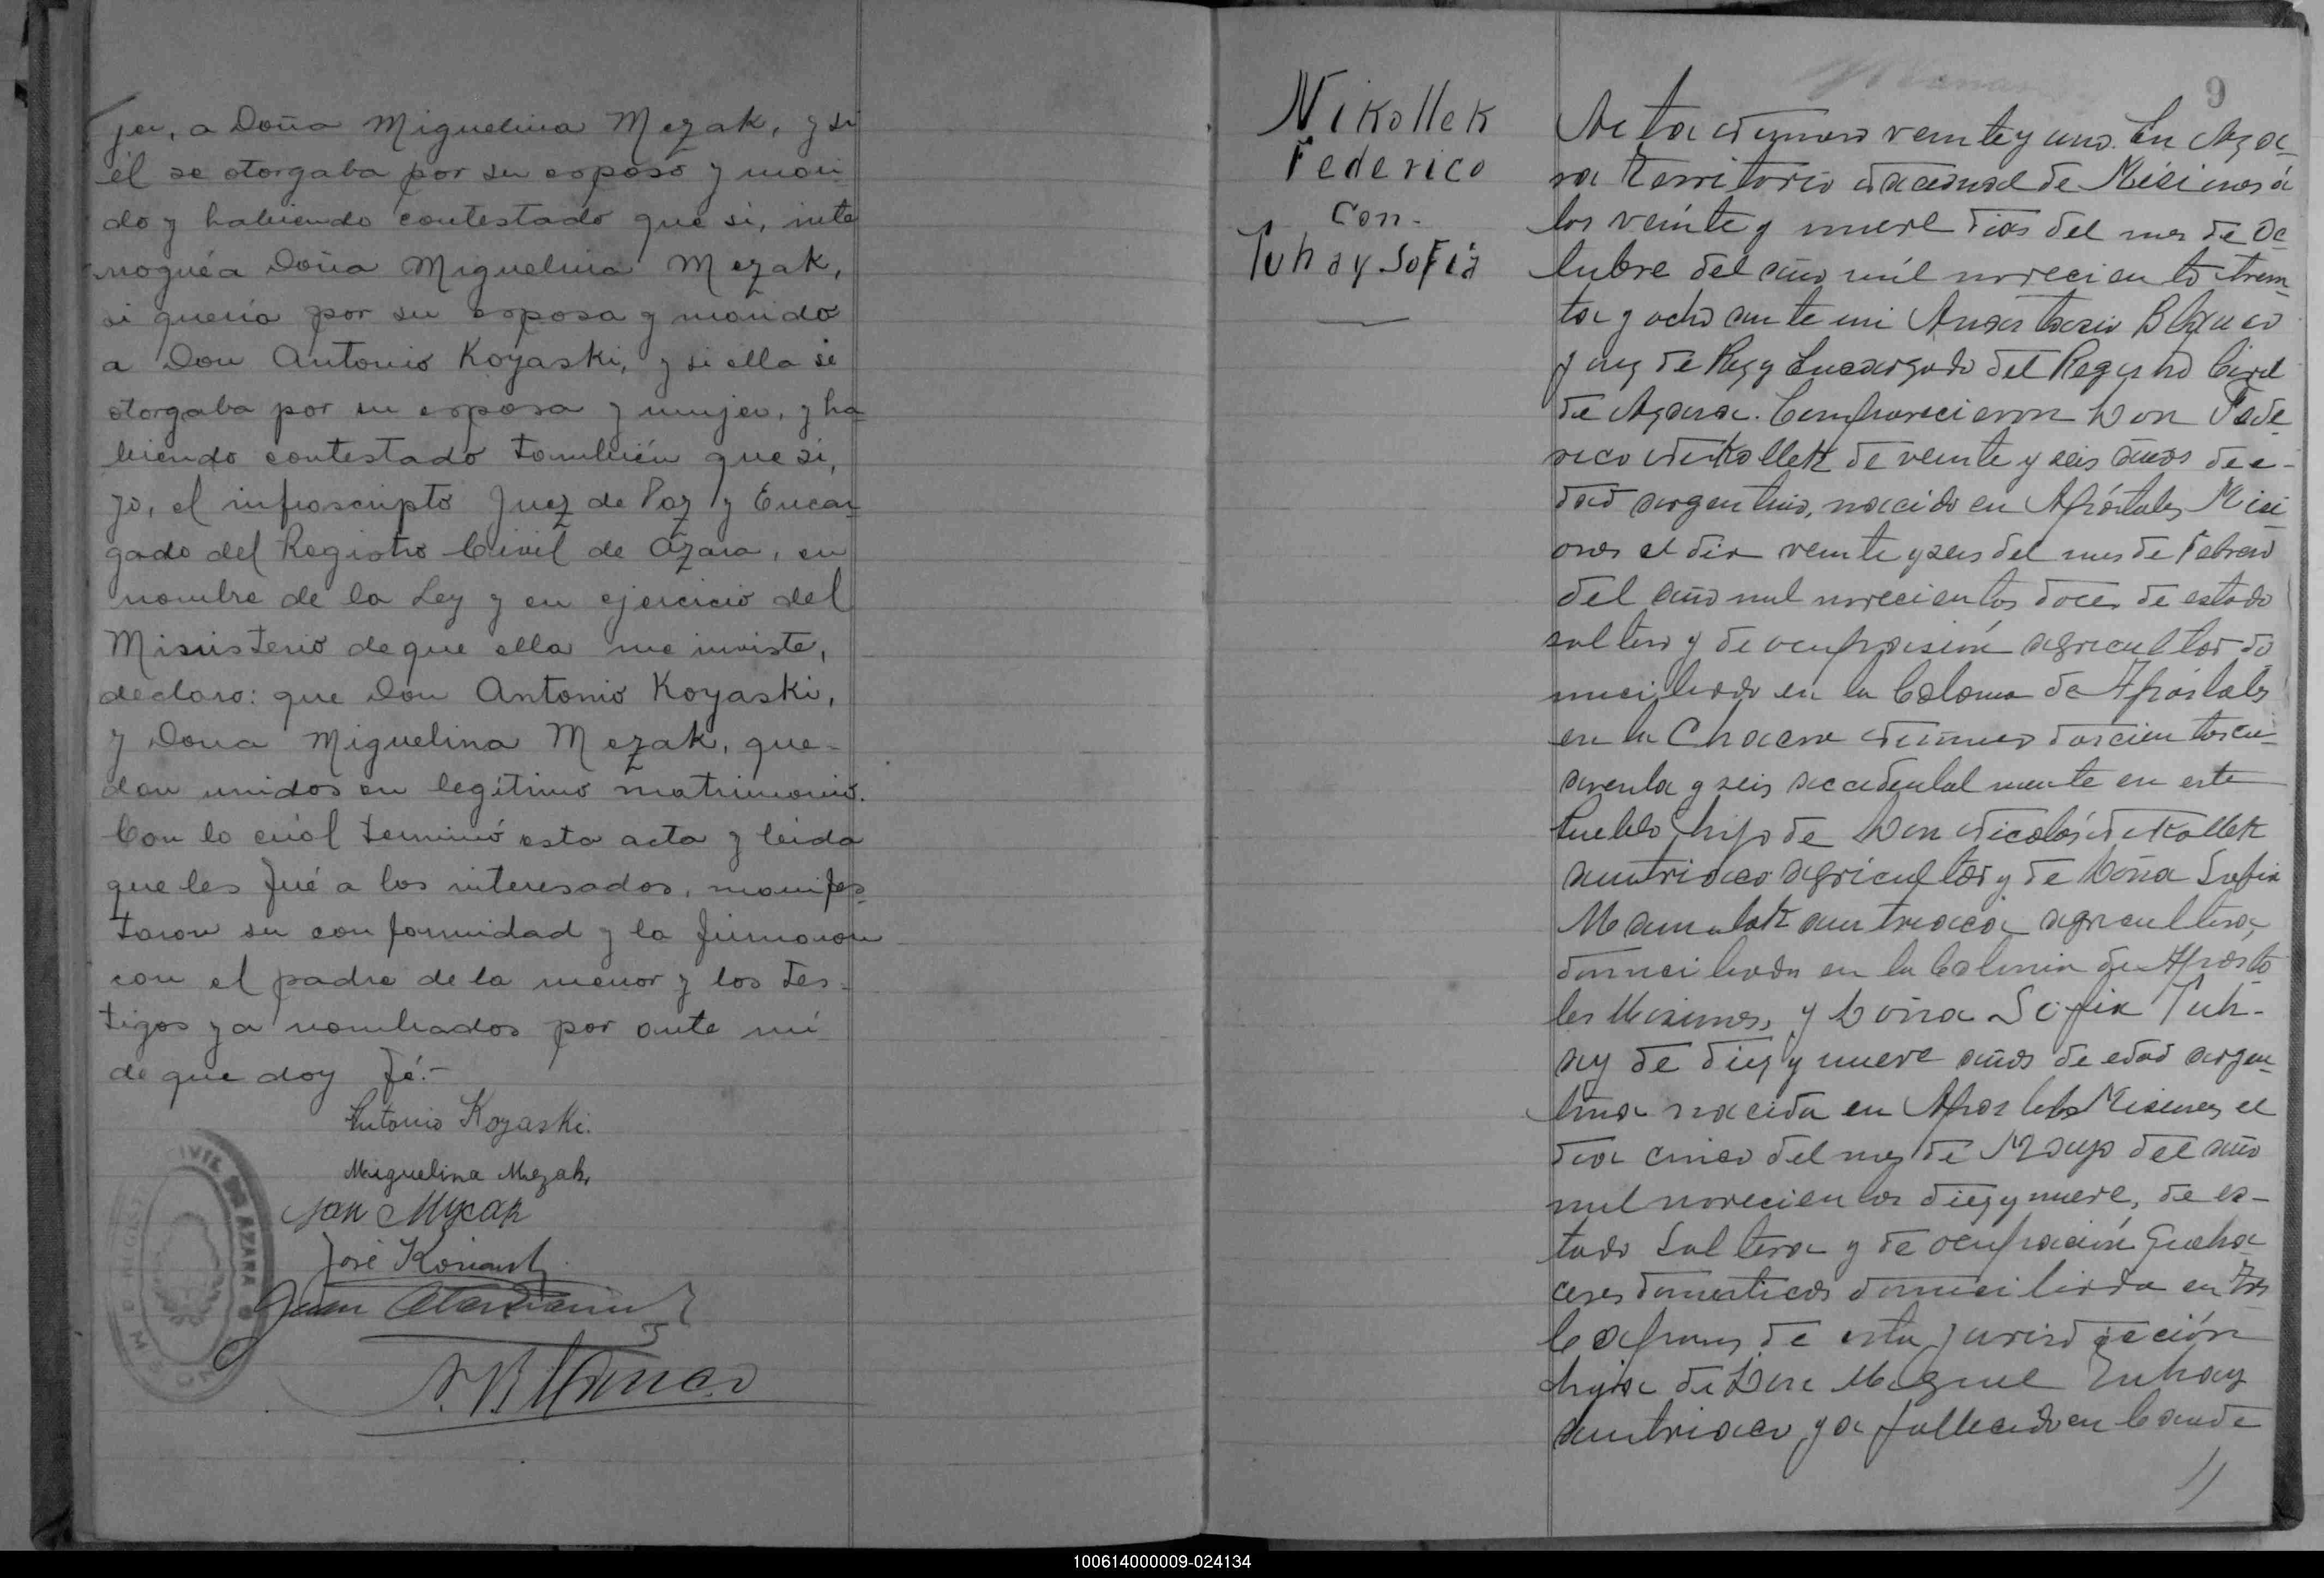 jer, a Doña Miguelina Mezak, y si
él se otorgaba por su esposo y mari
do y habiendo contestado que si, inte
rrogué a Doña Miguelina Mezak,
si queria por su esposa y marido
a Don Antonio Koyaski, y si ella se
otorgaba por su esposa y mujer, y ha
biendo contestado tambiién que si,
yo, el infrascripto Juez de Paz y Encar
gado del Registro Civil de Azara, en
nombre de la Ley y en ejercicio del
Ministerio de que ella me inviste,
declaro: que Don Antonio Koyaski,
y Dona Miguelina Mezak, que-
dan unidos en legítimo matrimonio.
Con lo cuál terminó esta acta y leida
que les fué a los interesados, manifes
taron su conformidad y la firmaron
con el padre de la menor y los tes-
tigos ya nombrados por ante mí
de que doy fé.-
Antonio Koyaski.
Miguelina Mezak,
Jan
José
Juan
A. Blanco
CIVIL DE AZARA
9
Nikollek
Federico
con.
Tuhay Sofia
Acta número veinte y uno. En Aza
ra Territorio Nacional de Misiones á
los veinte y nueve dias del mes de Oc
tubre del año mil novecientos trein
ta y ocho ante mi Anastacio Blanco
Juez de Paz y Encargado del Registro Civil
de Azara. Comparecieron Don Fede
rico Nikollek de veinte y seis años de e-
dad argentino, nacido en Apóstoles Misi
ones el dia veinte y seis del mes de Febrero
del año mil novecientos doce, de estado
soltero y de ocupasión agricultor do
miciliado en la Colonia de Apóstoles
en la Chacra número doscientos cu
arenta y seis accidentalmente en este
Pueblo, hijo de Don Nicolás Nikollek
austriaco agricultor y de Doña Sofia
austriaca agricultora,
domiciliada en la Colonia de Aposto
les Misiones, y Doña Sofia Tuh-
ay de diez y nueve años de edad argen
tina nacida en Apostoles Misiones el
dia cinco del mes de Mayo del año
mil novecientos diez y nueve, de es-
tado Soltera y de ocupación Queha
ceres domesticos domiciliada en Tres
Capones de esta jurisdicción
hija de Don Miguel Tuhay
austriaco ya fallecido en Cande